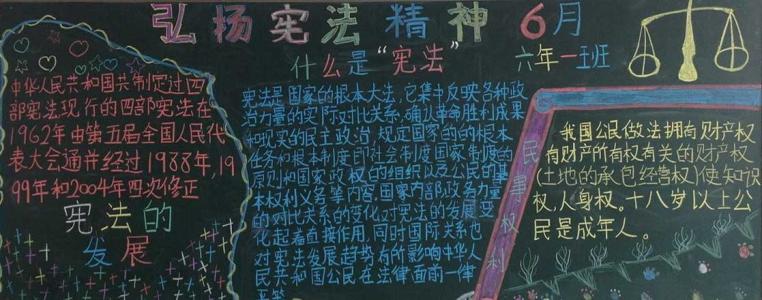 弘扬宪法精神 6月
什么是“宪法”
六年一班
中华人民共和国共制定过四
部宪法现行的四部宪法在
1962年由第五届全国人民代
表大会通并经过1988年,19
99年和2004年四次修正
宪法的
发展
宪法是国家的根本大法,它集中反映各种政
治力量的实际对比关系,确认革命胜利成果
和现实的民主政治,规定国家的的根本
任务和根本制度即社会制度国家制度的
原则和国家政权的组织以及公民的基
本权利义务等内容,国家内部政各力量
的对比关系的变化对宪法的发展变
化起着直接作用,同时国际关系也
对宪法发展趋势有所影响中华人
民共和国公民在法律面雨一律
平等
民事权利
我国公民依法拥有财产权
有财产所有权有关的财产权
(土地的承包经营权)使知识
权,人身权。十八岁以上公
民是成年人。